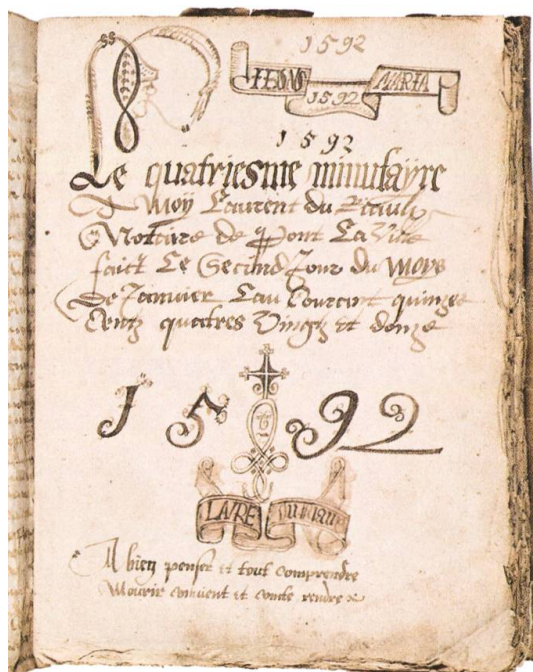 1592
IESUS MARIA
1592
1592
Le quatriesme minutayre
A Moy Laurent du
Notaire de Pont La Ville
faict Le Second Jour du Moys
De Janvier Lan Courant quinze
Centz quattres Vingtz et donze
1592
LAVRE
A bien penser et tout comprendre
Mourir convient et comte rendre